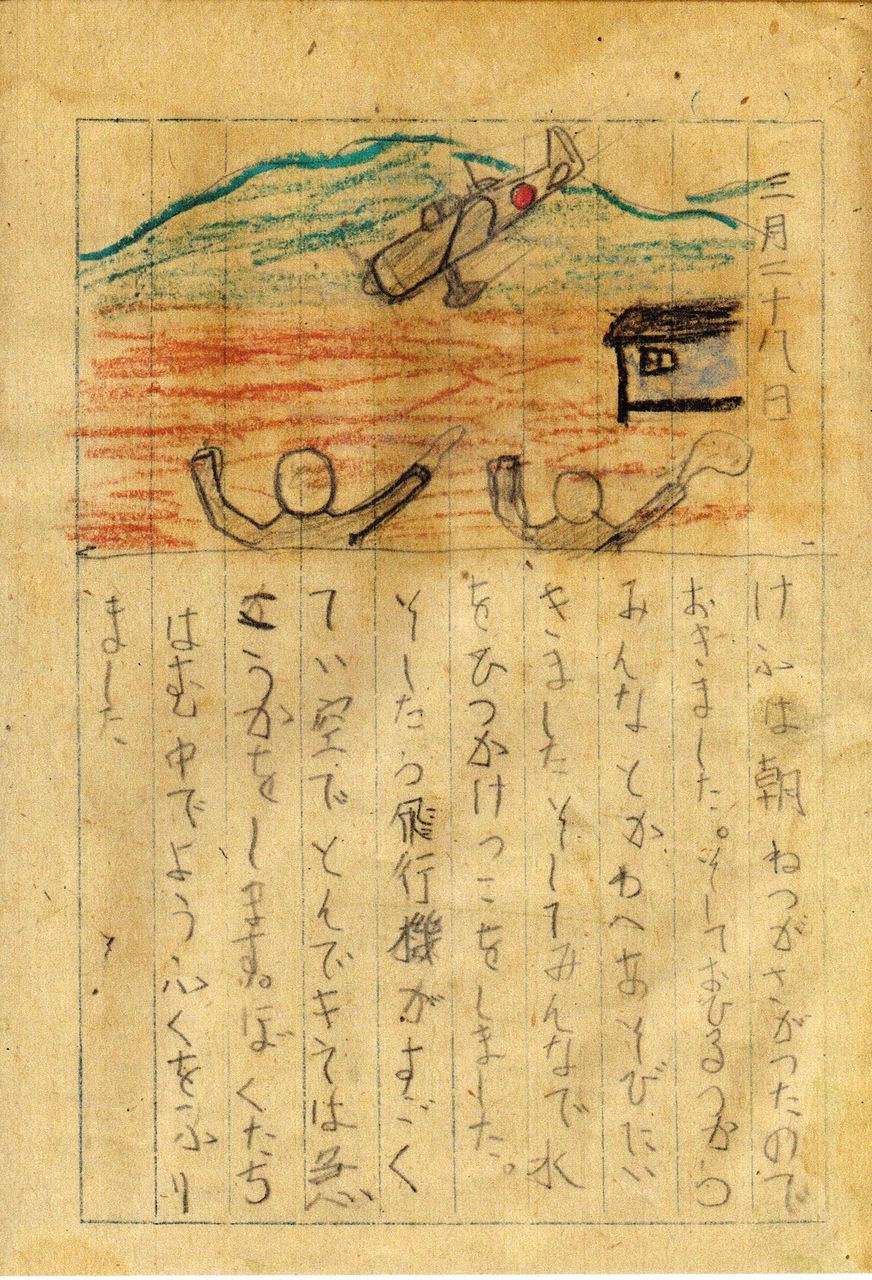 三月二十八日
けふは朝ねつがさがつたので
おきました。そしておひるつから
みんなとかわへあそびにい
きましたそしてみんなで水
をひつかけつこをしました。
そしたら飛行機がすごく
てい空でとんできては急
こうかをします。ぼくたち
はむ中でようふくをふり
ました